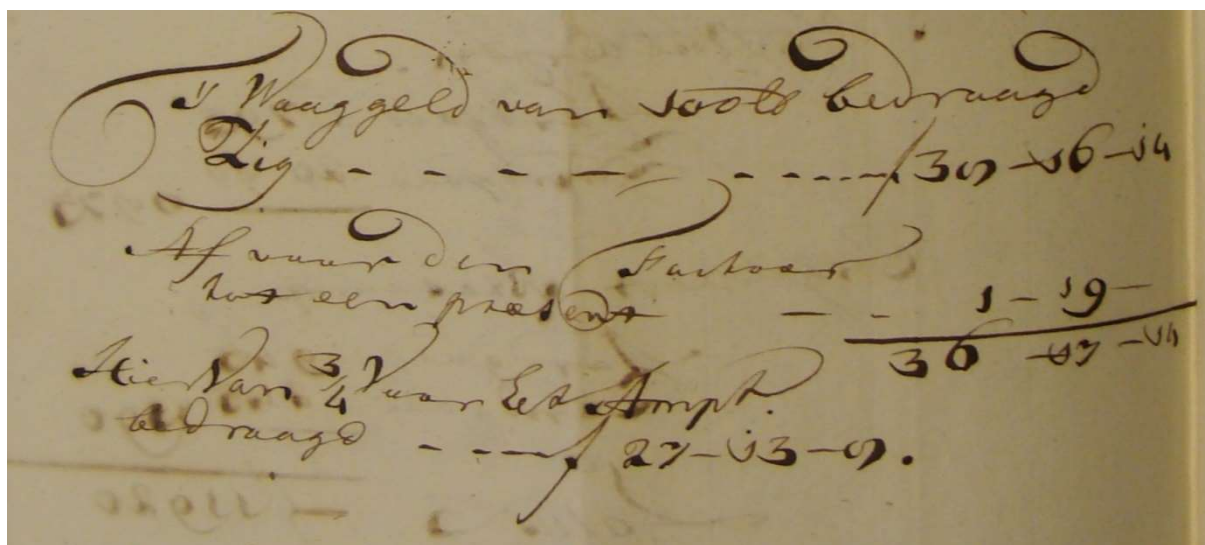 't Waaggeld van bedraagd
Zig - - - - - - - - - f 38-16-14
Af voor den Factoor
tot een præsent - - 1-19-
36-17-14
Hier Van 3/4 Voor het Ampt.
bedraagd - - - - f 27-13-8.